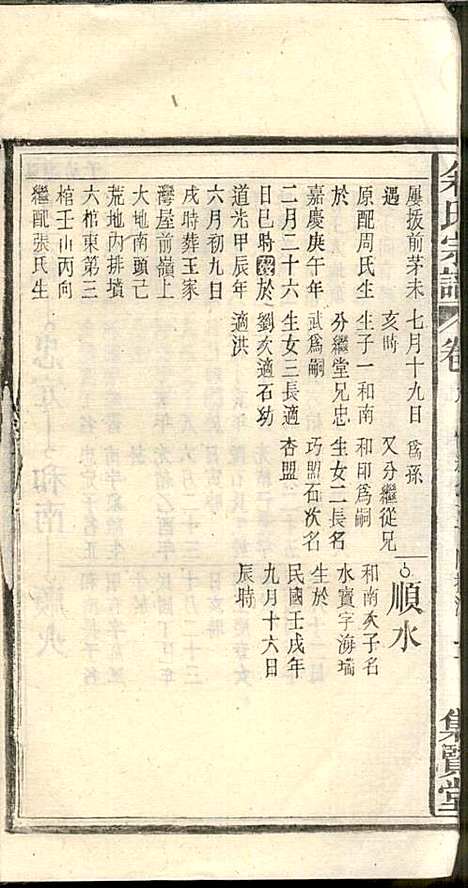 屢拔前茅未
遇
原配周氏生
於
嘉慶庚午年
二月二十六
日巳時歿於
道光甲辰年
六月初九日
戌時葬王家
灣屋前嶺上
大地南頭己
荒地內排墳
六棺東第三
棺壬山丙向
繼配張氏生
七月十九日
亥時
生子一和南
分繼堂兄忠
武爲嗣
生女三長適
劉次適石功
適洪
爲孫
又分繼從兄
和印爲嗣
生女二長名
巧盟石次名
杏盟
順水
和南次子名
水寶字海瑞
生於
民國壬戌年
九月十六日
辰時
氏宗譜
卷
集賢堂